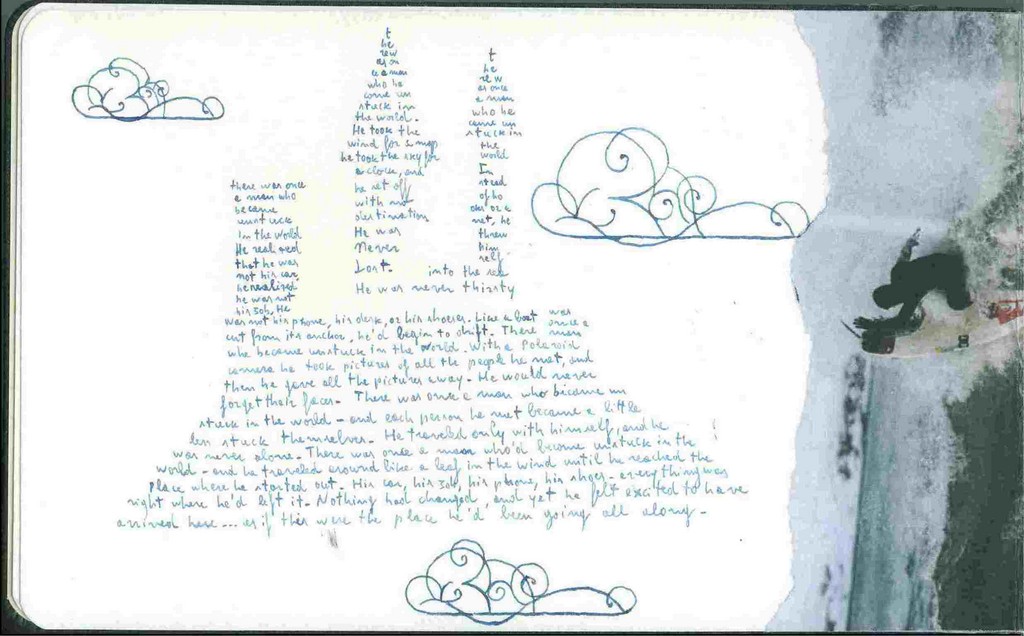 there was once
a man who
became
unstuck
in the world
He realized
that he was
not his car,
he realized
he was not
his job, He
t
he
rew
as on
ce a man
who be
came un
stuck in
the world.
He took the
wind for a map
he took the sky for
a clock, and
he set off
with no
destination
He was
Never
Lost.
t
he
rew
as once
a man
who be
came un
stuck in
the
world
In
stead
of ho
oks or a
net, he
threw
him
self
into the sea
He was never thirsty
was not his phone, his desk, or his shoes. Like a boat
cut from its anchor, he'd begin to drift. There
was
once a
man
who became unstuck in the world. With a Polaroid
camera he took pictures of all the people he met, and
then he gave all the pictures away. He would never
forget their faces. There was once a man who became un
stuck in the world - and each person he met became a little
less stuck themselves. He traveled only with himself, and he
was never alone. There was once a man who'd become unstuck in the
world - and he traveled around like a leaf in the wind until he reached the
place where he started out. His car, his job, his phone, his shoes - everything was
right where he'd left it. Nothing had changed, and yet he felt excited to have
arrived here... as if this were the place he'd been going all along.